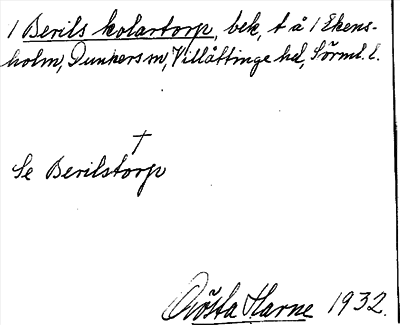 1 Berils kolartorp, bek, t å 1 Ekens-
holm, Dunkers sn, Villåttinge hd, Sörml. l.
†
Se Berilstorp
Gösta Harne 1932.